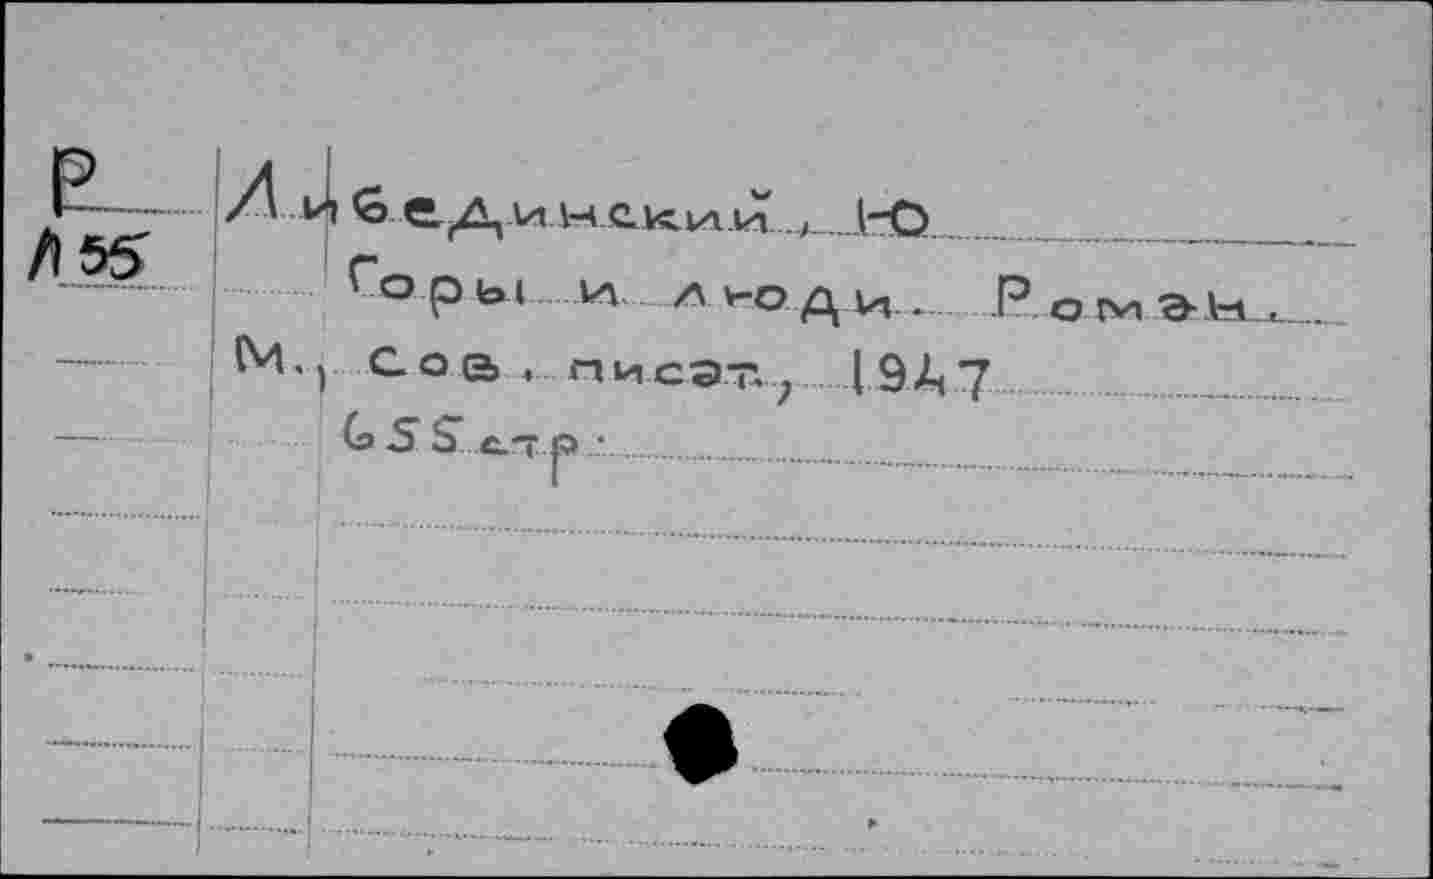 Р
Л55
Либединский, Ю
Горы и люди. Роман.
М., Сов. писат., 1947
655 стр.